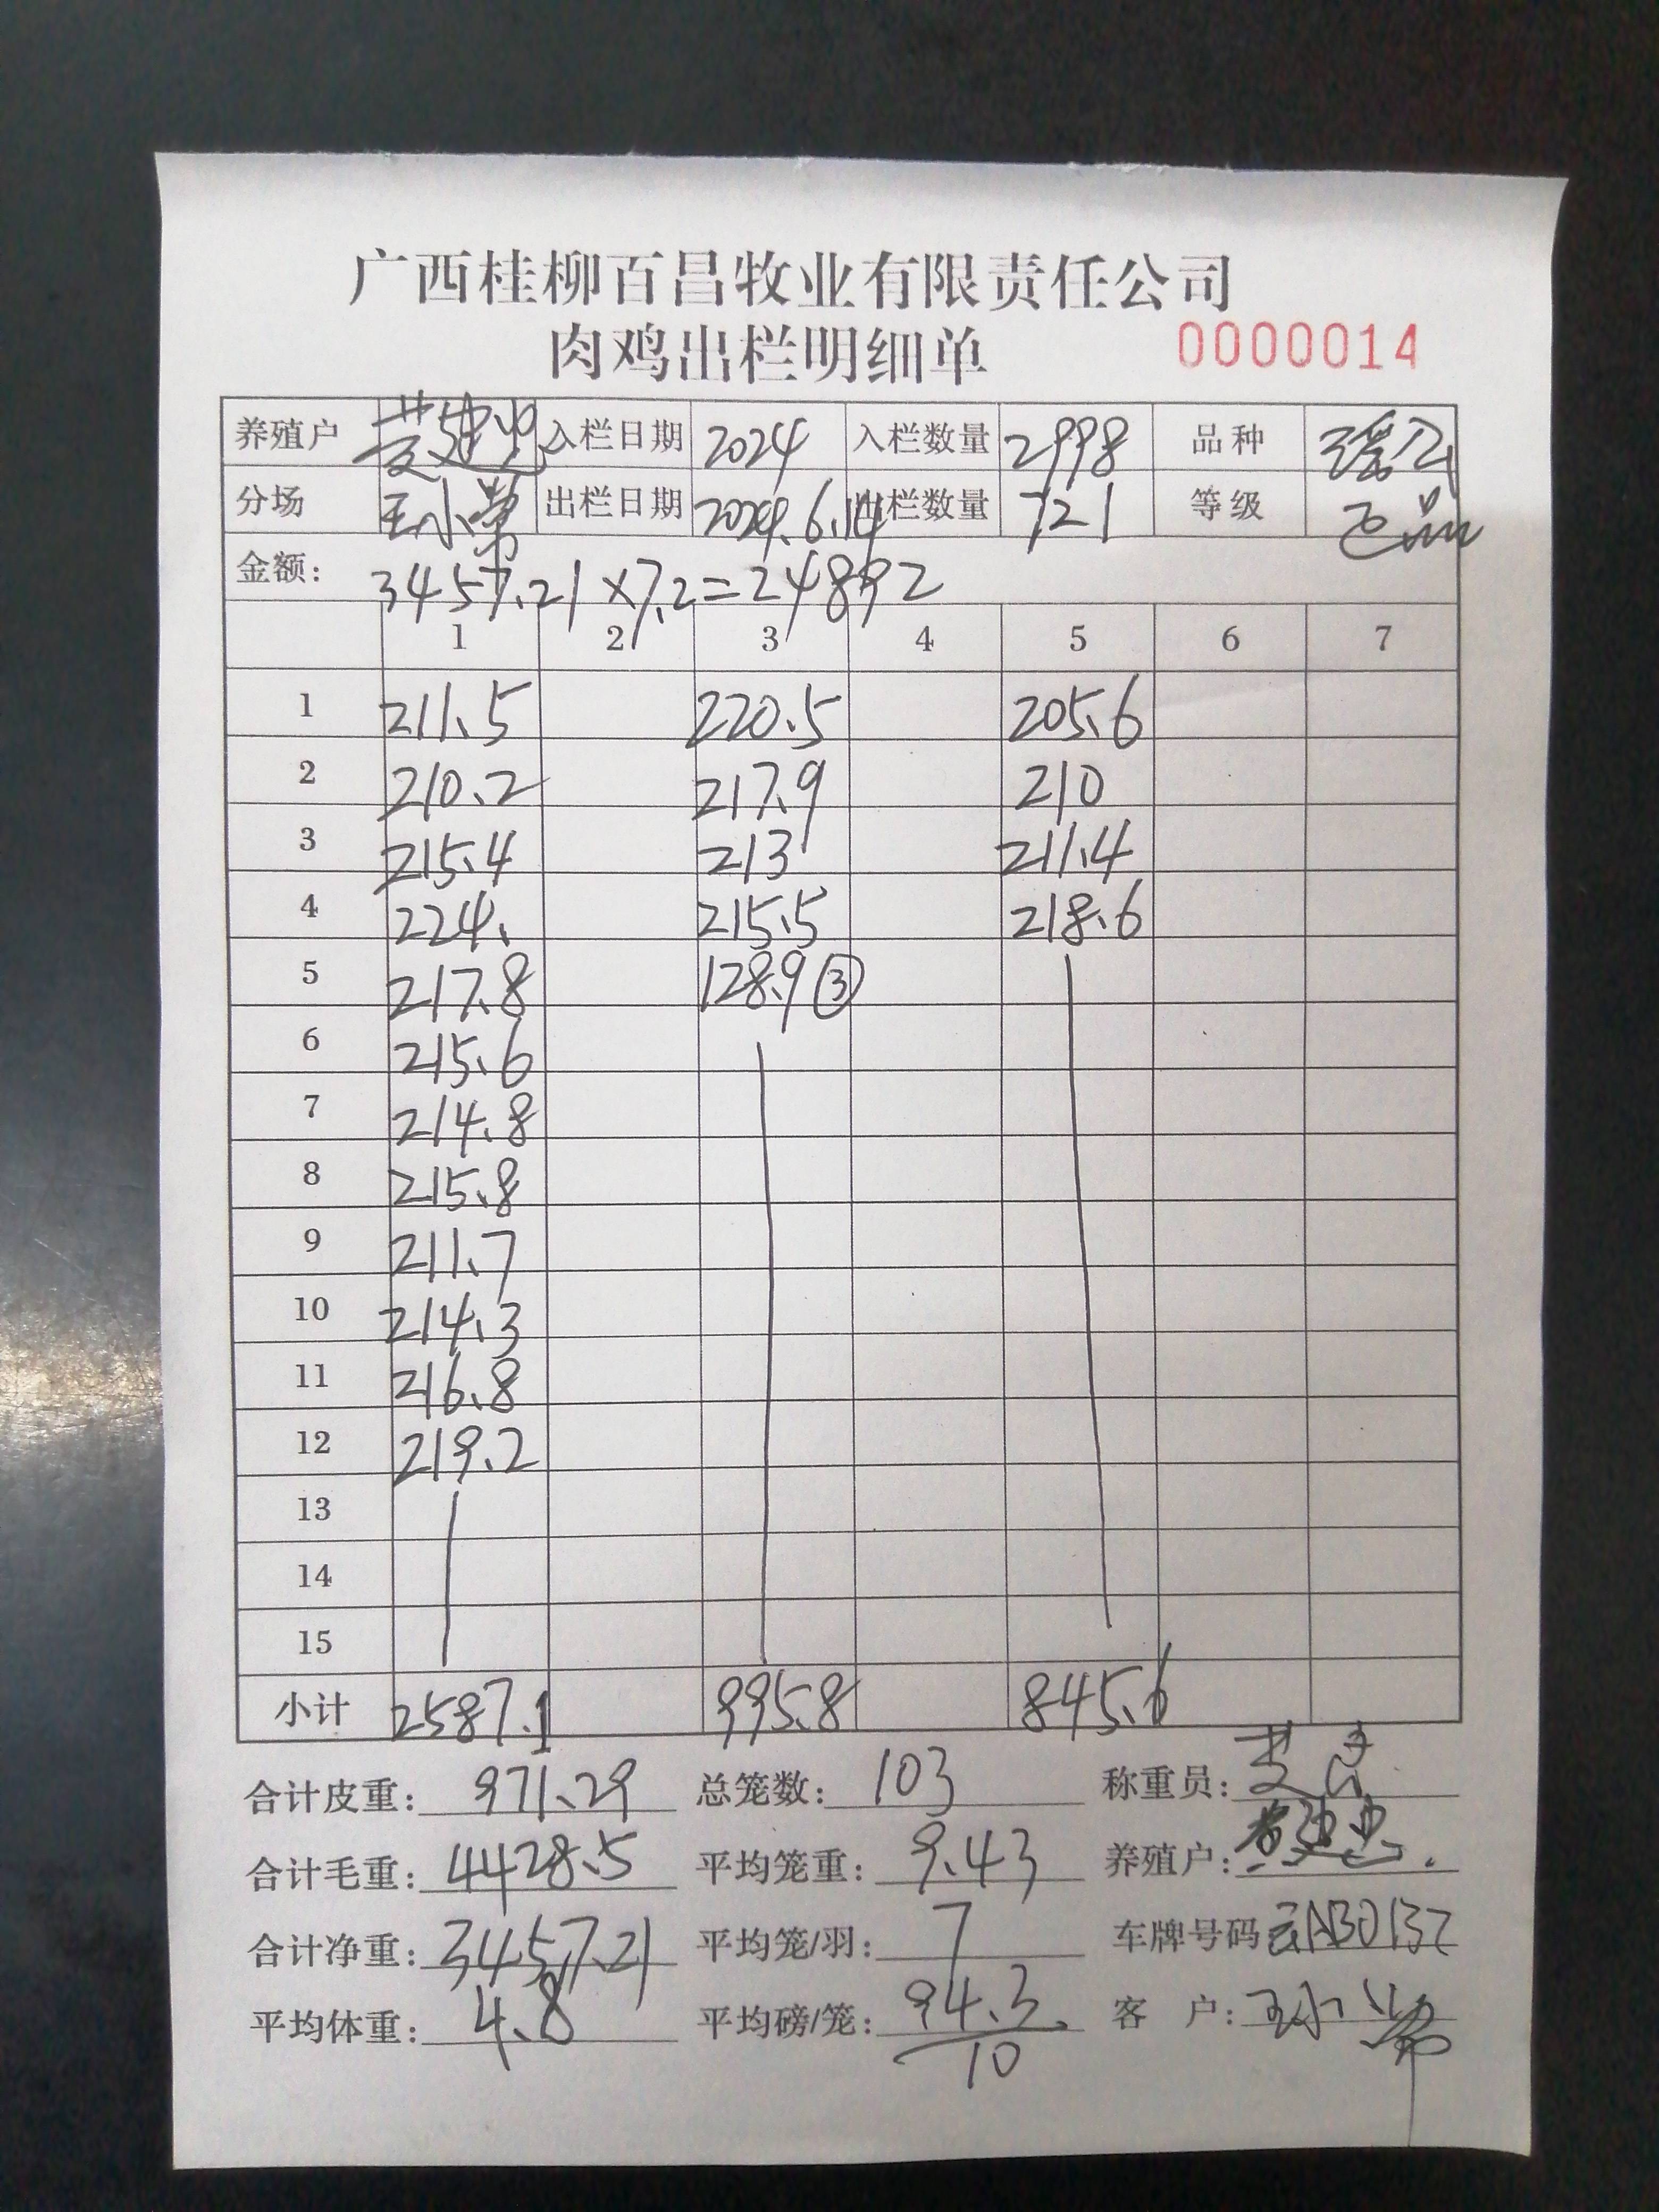 广西桂柳百昌牧业有限责任公司
肉鸡出栏明细单 0000014
养殖户 入栏日期 2024 入栏数量 2998 品种 瑶公
分场 王小常 出栏日期 2024.6.14 出栏数量 721 等级 正品
金额: 3457.21×7.2=24892
1 2 3 4 5 6 7
1 211.5 220.5 205.6
2 210.2 217.9 210
3 215.4 213 211.4
4 224. 215.5 218.6
5 217.8 128.9 ③
6 215.6
7 214.8
8 215.8
9 211.7
10 214.3
11 216.8
12 219.2
13
14
15
小计 2587.1 995.8 845.6
合计皮重: 971.29 总笼数: 103 称重员:
合计毛重: 4428.5 平均笼重: 9.43 养殖户:
合计净重: 3457.21 平均笼/羽: 7 车牌号码 云AB0137
平均体重: 4.8 平均磅/笼: 94.3 客 户: 王小常
10